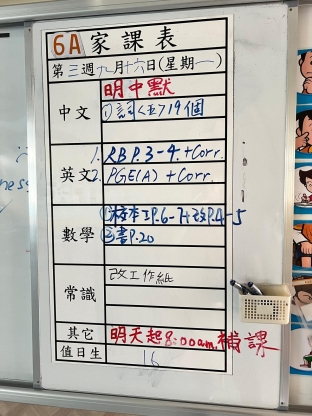 6A 家課表
第三週九月十六日(星期一)
中文 明中默
①詞<五>19個
英文 1. RB P.3-4. +Corr.
2. PGE(A) + Corr.
數學 ①校本工P.6-7+改P.4-5
②書P.20
常識 改工作紙
其它 明天起8:00am補課
值日生 16